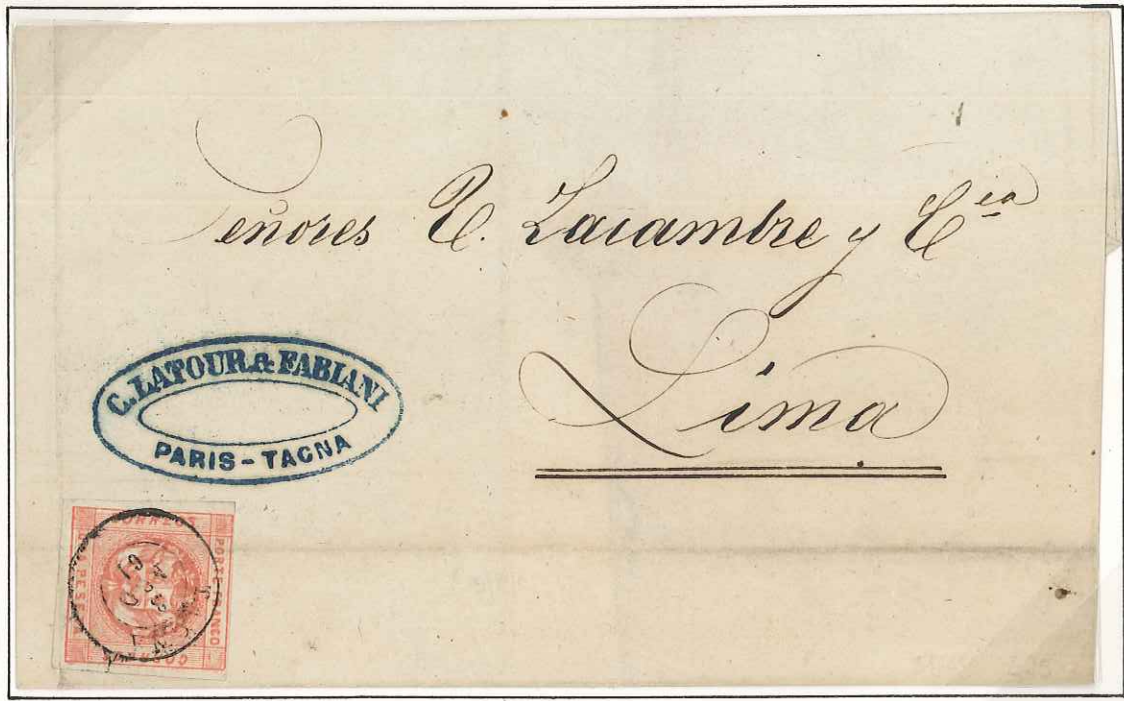 Señores E. Lacambre y C<sup>ia</sup>
Lima
C. LATOUR & FABIANI
PARIS - TACNA
CORREOS
PORTE FRANCO
1 PESETA